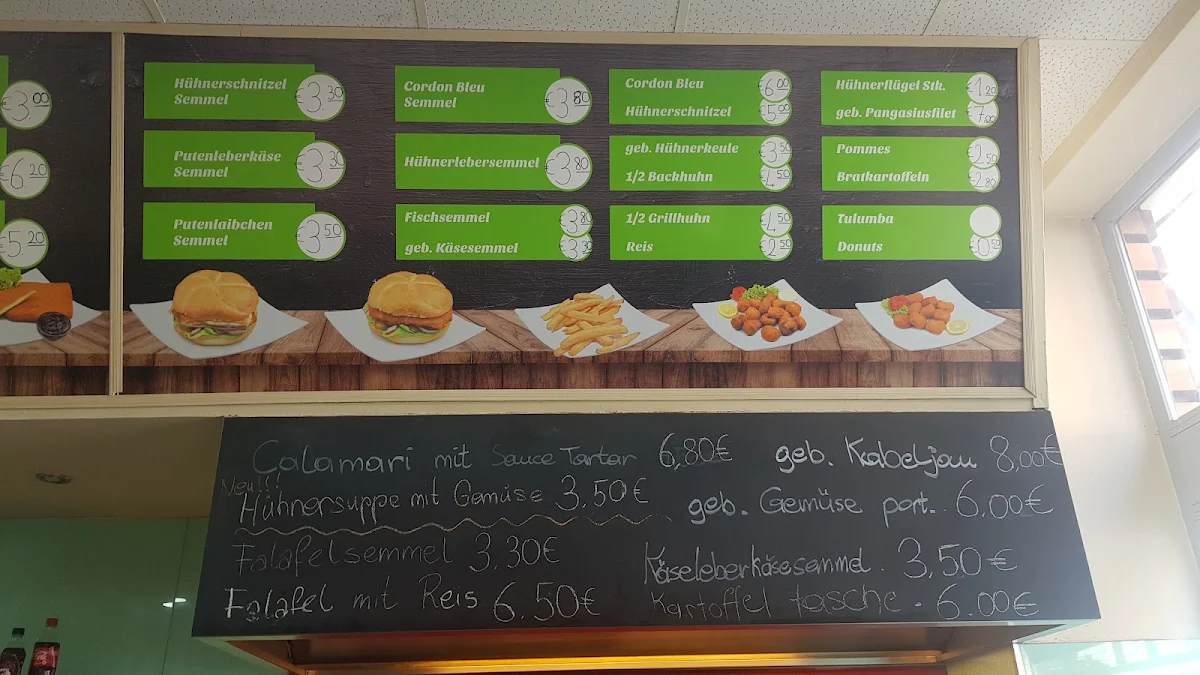 €3.00
€6.20
€5.20
Hühnerschnitzel
Semmel
€3.30
Putenleberkäse
Semmel
€3.30
Putenlaibchen
Semmel
€3.50
Cordon Bleu
Semmel
€3.80
Hühnerlebersemmel €3.80
Fischsemmel €3.80
geb. Käsesemmel €3.30
Cordon Bleu €6.00
Hühnerschnitzel €5.00
geb. Hühnerkeule €3.50
1/2 Backhuhn €4.50
1/2 Grillhuhn €4.50
Reis €2.50
Hühnerflügel Stk. €1.20
geb. Pangasiusfilet €7.00
Pommes €2.50
Bratkartoffeln €2.80
Tulumba
Donuts €0.50
Calamari mit Sauce Tartar 6,80€
Neu!!!
Hühnersuppe mit Gemüse 3.50€
Falafelsemmel 3.30€
Falafel mit Reis 6.50€
geb. Kabeljau 8,00€
geb. Gemüse port. 6.00€
Käseleberkäsesemmel. 3,50€
Kartoffel tasche - 6.00€